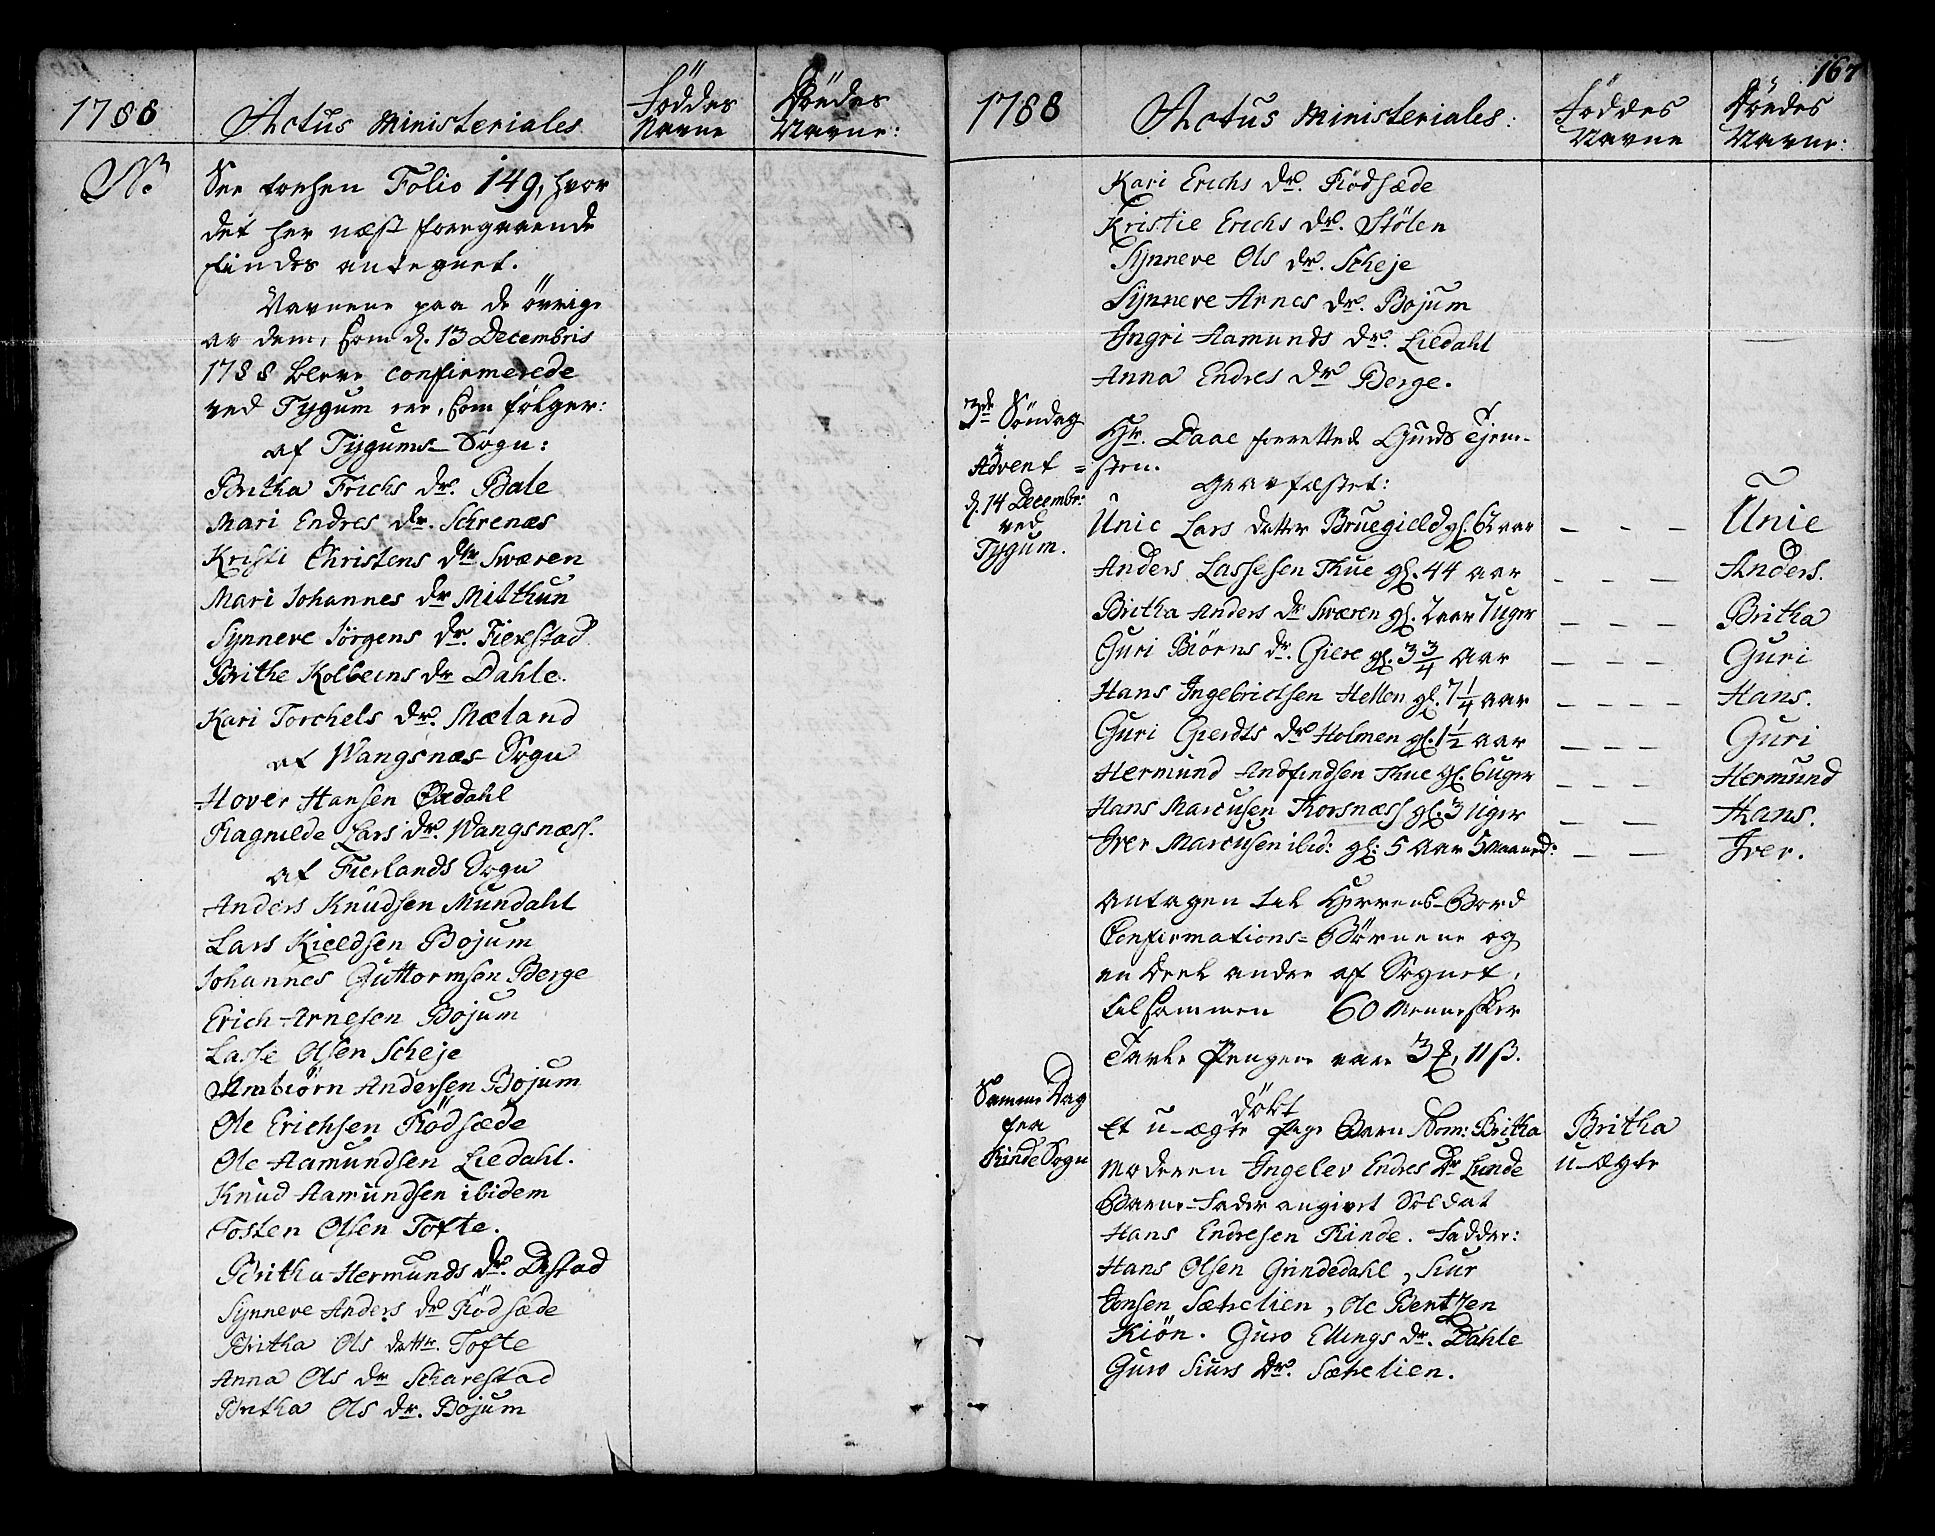 1788
Actus Ministeriales
Föddes Navne
Döedes Navne:
NB.
See forhen Folio 149, hvor
det her næst foregaaende
findes antegnet.
Navnene paa de övrige
av dem, som d. 13 Decembris
1788 bleve confirmerede
ved Tygum ere, som fölger:
af Tygums-Sogn:
Britha Erichs dr. Bale
Mari Endres dr. Schrenæs
Kristi Christens dtr Sværen
Mari Johannes dr Midthun
Synneve Jörgens dr. Fierestad
Brithe Kolbeins dr Dahle.
Kari Torchels dr. Mæland
af Wangsnæs-Sogn
Hover Hansen Oxdahl
Ragnilde Lars dr. Wangsnæss.
af Fierlands Sogn
Anders Knudsen Mundahl
Lars Kieldsen Bojum
Johannes Guttormsen Berge
Erich Arnesen Bojum
Lasse Olsen Scheje
Arnbiörn Andersen Bojum
Ole Erichsen Rödsæde
Ole Aamundsen Liedahl.
Knud Aamundsen ibidem
Tosten Olsen Tofte.
Britha Hermunds dr. Distad
Synneve Anders dr Rödsæde
Britha Ols dattr. Tofte
Anna Ols dr Scharestad
Britha Ols dr. Bojum
167
1788
Actus Ministeriales:
Föddes Navne
Döedes Navne:
Kari Erichs dr. Rödsæde
Kristie Erichs dr. Stölen
Synneve Ols dr. Scheje
Synneve Arnes dr. Bojum
Ingri Aamunds dr. Liedahl
Anna Endres dr Berge.
3de Söndag
i
Advent
d. 14 Decembr:
ved
Tygum.
Hr. Daae forrettede Guds Tjene-
sten.
Gravfæstet:
Unie Lars datter Bruegield gl. 62 aar — — — Unie
Anders Lassesen Thue gl. 44 aar — — — Anders.
Britha Anders dr Sværen gl. 2 aar 7 uger — — — Britha
Guri Biörns dr. Giere gl. 3 3/4 Aar — — — Guri
Hans Ingebrictsen Hellen gl. 7 1/4 aar — — — — Hans.
Guri Gierdts dr Holmen gl. 1 1/2 aar — — — Guri
Hermund Andfindsen Thue gl. 6 uger — — — Hermund
Hans Marcusen Korsnæss gl. 3 Uger — — — Hans.
Iver Marcusen ibid: gl: 5 Aar 5 Maaned: — — Iver.
Antagen til Herrens-Bord
Confirmations-Börnene og
en deel andre af Sognet,
tilsammen 60 Mennesker
Tavle Pengene vare 3 , 11 ß.
Samme Dag
fra
Rinde Sogn
döbt
Et u-ægte Pige Barn Nom: Britha
Britha
u-ægte
Moderen Ingelev Endres Dr Lunde
Barne-Fader angivet Soldat
Hans Endresen Rinde. Fadder:
Hans Olsen Grindedahl, Siur
Jonsen Sætrelien, Ole Bentzen
Kiön. Guro Ellings dr. Dahle
Guro Siurs Dr. Sætrelien.